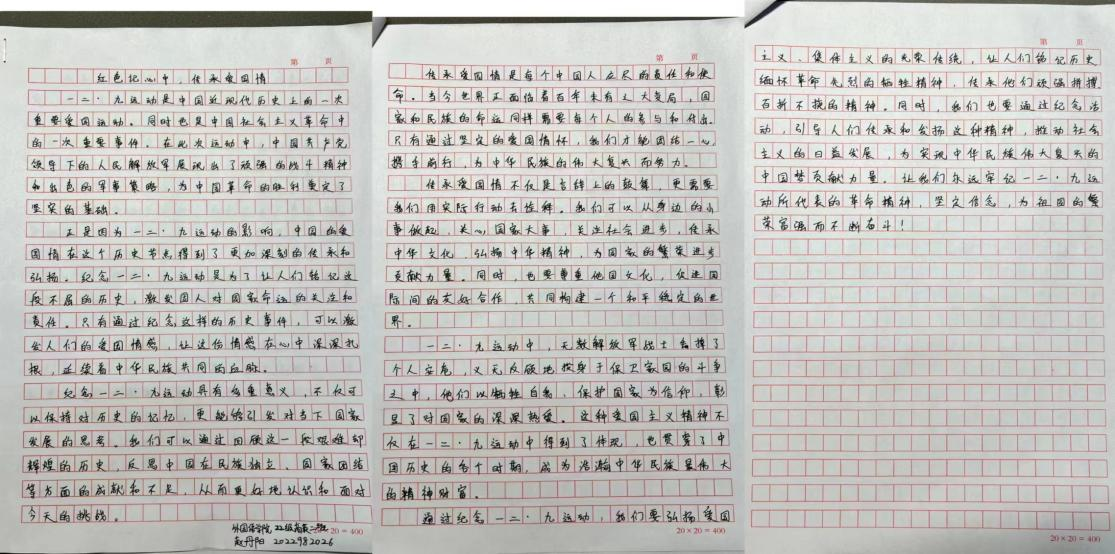 第 页
红色记心中,传承爱国情
一二·九运动是中国近现代历史上的一次
重要爱国运动。同时也是中国社会主义革命中
的一次重要事件。在此次运动中,中国共产党
领导下的人民解放军展现出了顽强的战斗精神
和出色的军事策略,为中国革命的胜利奠定了
坚实的基础。
正是因为一二·九运动的影响,中国的爱
国情在这个历史节点得到了更加深刻的传承和
弘扬。纪念一二·九运动是为了让人们铭记这
段不屈的历史,激发国人对国家命运的关注和
责任。只有通过纪念这样的历史事件,可以激
发人们的爱国情感,让这份情感在心中深深扎
根,延续着中华民族共同的血脉。
纪念一二·九运动具有多重意义,不仅可
以保持对历史的记忆,更能够引发对当下国家
发展的思考。我们可以通过回顾这一段艰难却
辉煌的历史,反思中国在民族独立、国家团结
等方面的成就和不足,从而更好地认识和面对
今天的挑战。
外国语学院 22级 二班
赵丹阳 2022982026
20×20=400
第 页
传承爱国情是每个中国人应尽的责任和使
命。当今世界正面临着百年未有之大变局,国
家和民族的命运同样需要每个人的参与和付出。
只有通过坚定的爱国情怀,我们才能团结一心,
携手前行,为中华民族的伟大复兴而努力。
传承爱国情不仅是言辞上的鼓舞,更需要
我们用实际行动去诠释。我们可以从身边的小
事做起,关心国家大事,关注社会进步,传承
中华文化,弘扬中华精神,为国家的繁荣进步
贡献力量。同时,也要尊重他国文化,促进国
际间的友好合作,共同构建一个和平稳定的世
界。
一二·九运动中,无数解放军战士舍掉了
个人安危,义无反顾地投身于保卫家国的斗争
之中,他们以牺牲自我、保护国家为信仰,彰
显了对国家的深深热爱。这种爱国主义精神不
仅在一二·九运动中得到了体现,也贯穿了中
国历史的各个时期,成为浩瀚中华民族最伟大
的精神财富。
通过纪念一二·九运动,我们要弘扬爱国
20×20=400
第 页
主义、集体主义的光荣传统,让人们铭记历史
缅怀革命先烈的牺牲精神,传承他们顽强拼搏
百折不挠的精神。同时,我们也要通过纪念活
动,引导人们传承和发扬这种精神,推动社会
主义的日益发展,为实现中华民族伟大复兴的
中国梦贡献力量。让我们永远牢记一二·九运
动所代表的革命精神,坚定信念,为祖国的繁
荣富强而不断奋斗!
20×20=400